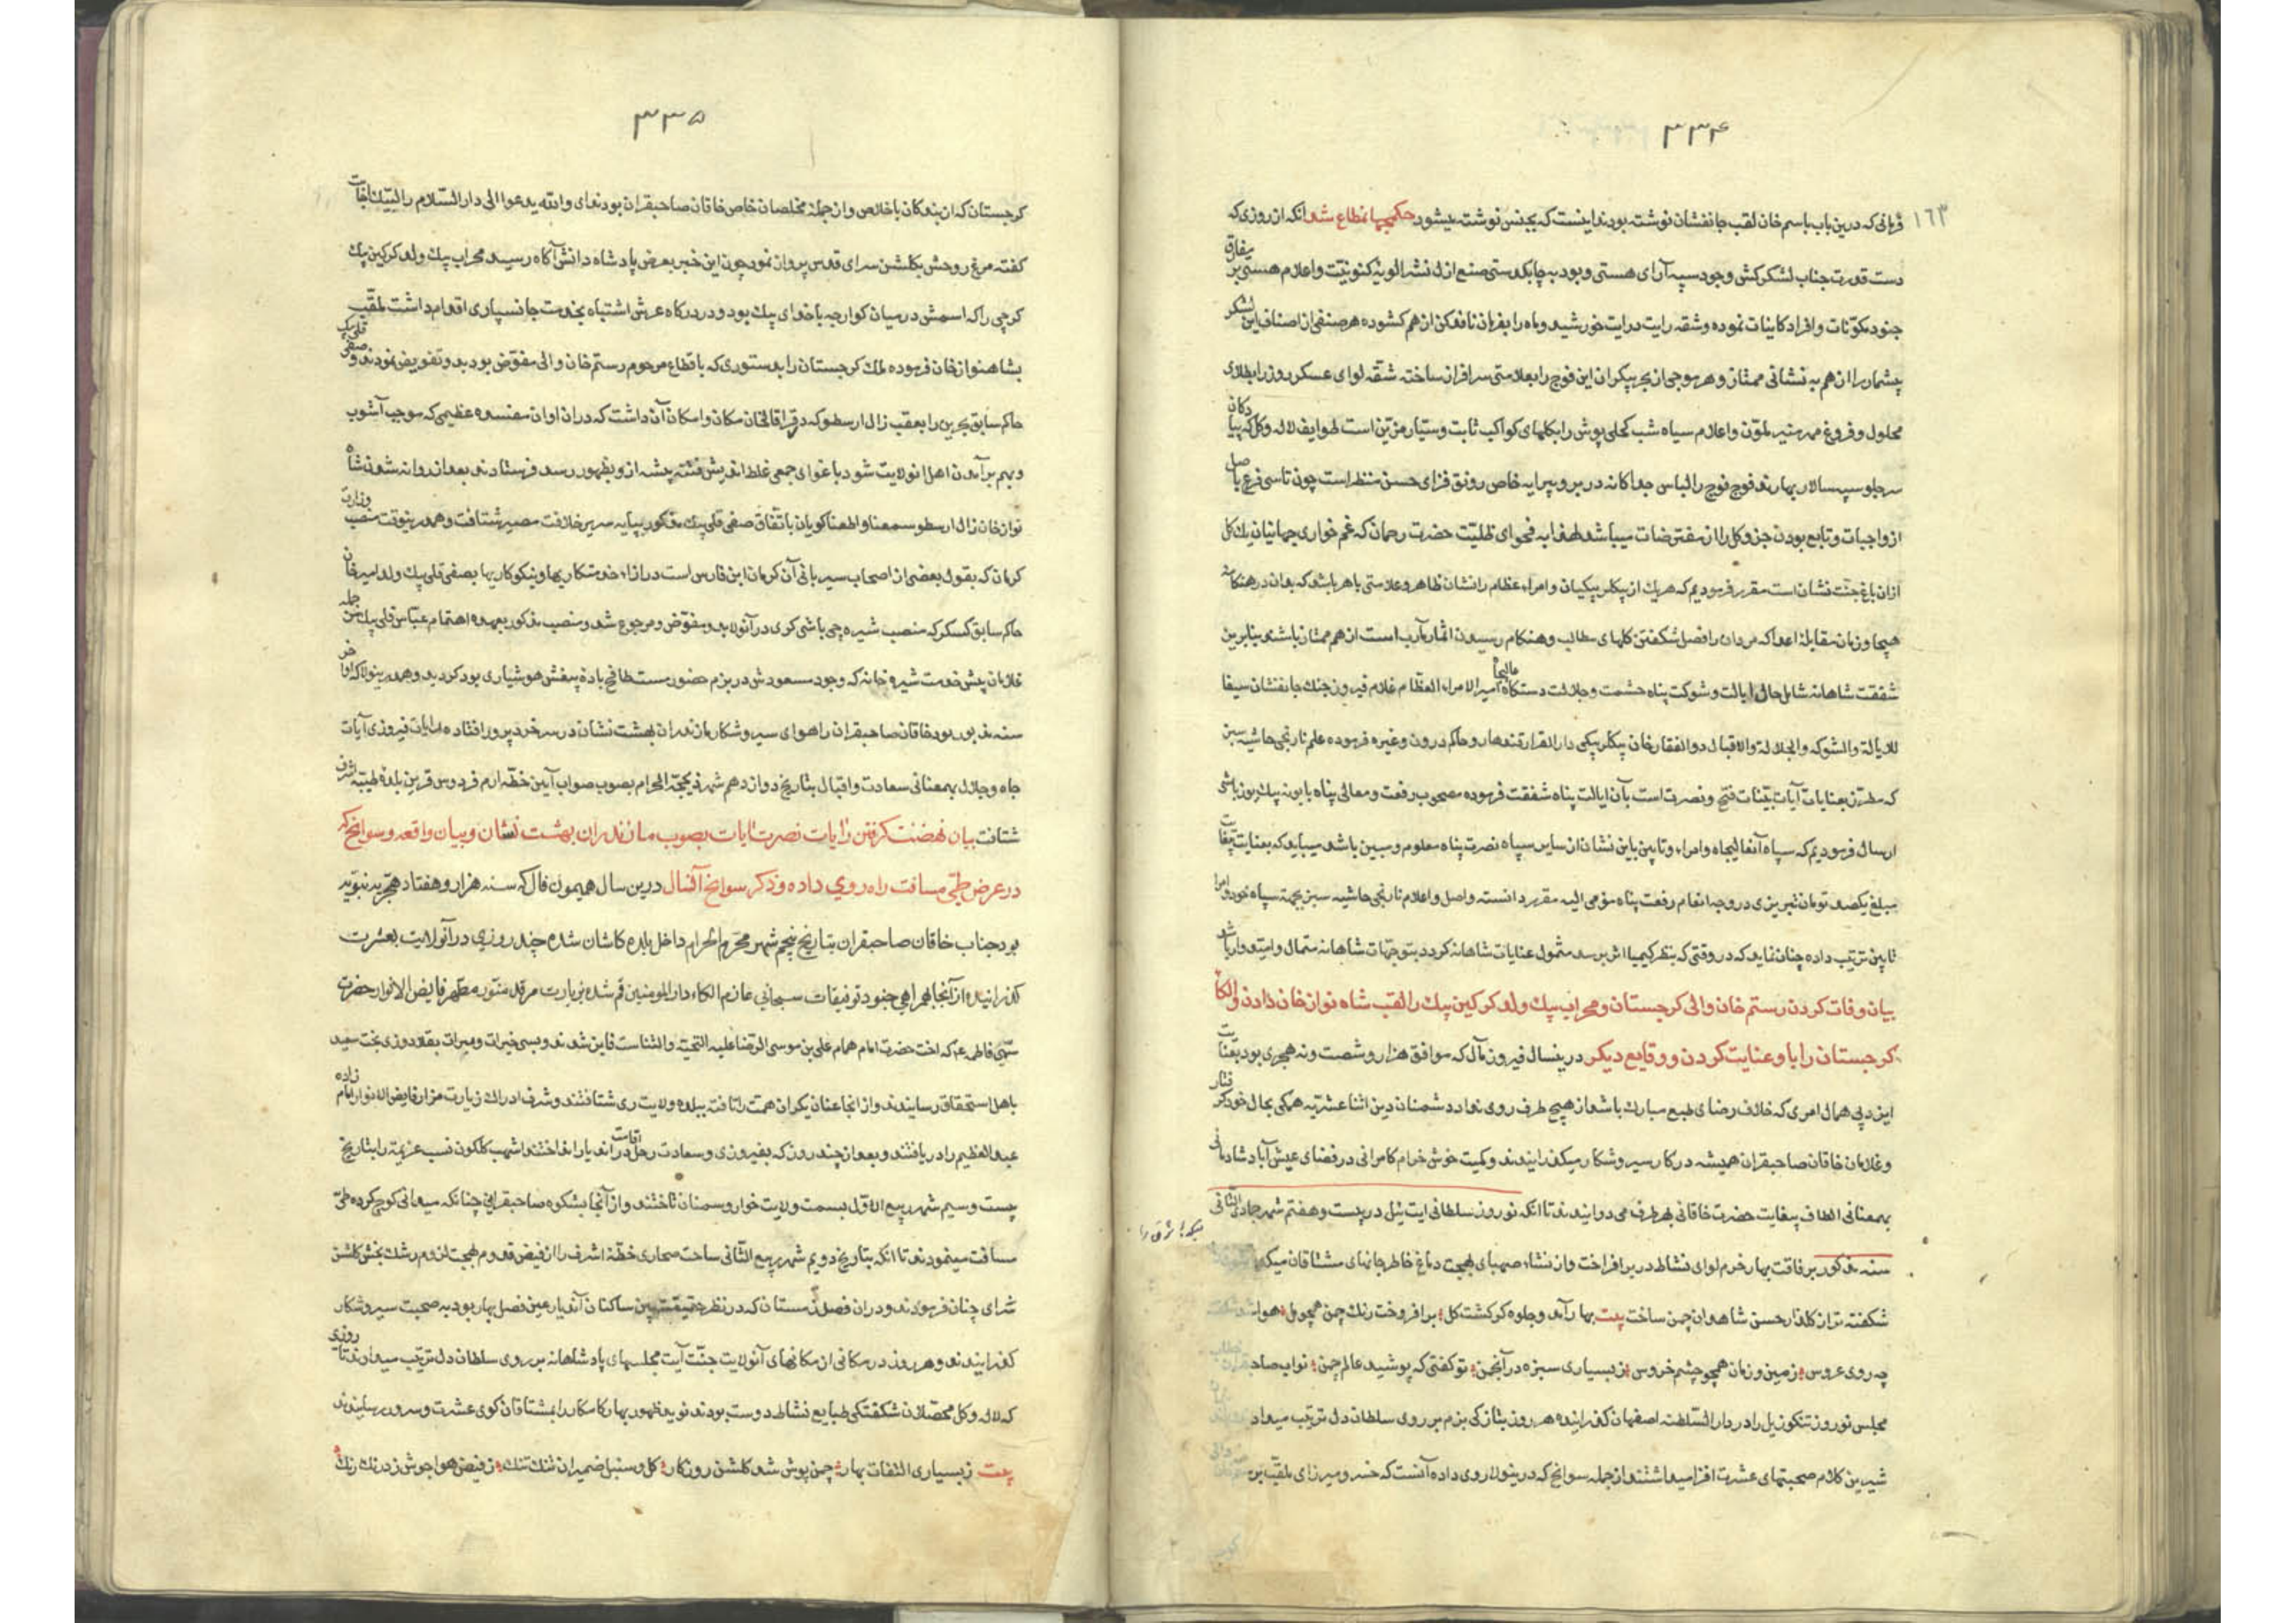 ۳۳۴
۱۶۳
فرمانی که درین باب باسم خان لقب جانفشان نوشته بودند اینست که بجنس نوشته میشود حکم جهانمطاع شد آنکه از روزی که
دست قدرت جناب لشکرکش وجود سپه آرای هستی و بود به چابکدستی صنع ازل نشر الویه کنونیت و اعلام هستی بر مفارق
جنود مکونات و افراد کاینات نموده و شقه رایت درایت خورشید و ماه را بفرمان نافذ کن از هم کشوده هر صنفی از اصناف این لشکر
بیشمار را از هم به نشانی ممتاز و هر موجی از بحر بیکران این فوج را بعلامتی سرافراز ساخته شقه لوای عسکر روز را بطلای
محلول و فروغ مهر منیر ملون و اعلام سپاه شب کحلی پوش را بکلهای کواکب ثابت و سیار مزین است طوایف لاله و کل که پیادکان
سر جلو سپهسالار بهارند فوج فوج را لباس جداکانه در بر و پیرایه خاص رونق فزای حسن منظر است چون تاسی فرع باصل
از واجبات و تابع بودن جزو کل را از مفترضات میباشد لهذا به فحوای ظلیت حضرت رحمان که غم خواری جهانیان یک کل
ازان باغ جنت نشان است مقرر فرمودیم که هر یک از بیکلربیکیان و امراء عظام را نشان ظاهر و علامتی باهر باشد که بدان در هنکامه
هیجا و زمان مقابله اعدا که مردان را فصل شکفتن کلهای مطالب و هنکام رسیدن اثمار مآرب است از هم ممتاز باشند بنابرین
شفقت شاهانه شامل حال ایالت و شوکت پناه حشمت و جلالت دستکاه عالیجاه امیر الامراء العظام غلام فیروز جنک جانفشان سیفا
للایالة والشوکه والجلالة والاقبال ذوالفقار خان بیکلربیکی دار القرار قندهار و حاکم درون و غیره فرموده علم نارنجی حاشیه سبز
که مطرز بعنایات آیات بینات فتح و نصرت است بآن ایالت پناه شفقت فرموده مصحوب رفعت و معالی پناه بابونه بیک یوزباشی
ارسال فرمودیم که سپاه آنعالیجاه و امراء و تابین باین نشان از سایر سپاه نصرت پناه معلوم و مبین باشد میباید که بعنایت بیغایت
مبلغ یکصد تومان تبریزی در وجه انعام رفعت پناه مومی الیه مقرر دانسته واصل و اعلام نارنجی حاشیه سبز بجهة سپاه خود و امرا
تابین ترتیب داده چنان نماید که در وقتی که بنظر کیمیا اثر برسد مشمول عنایات شاهانه کردد بتوجهات شاهانه مستمال و امیدوار باشد
بیان وفات کردن رستم خان والی کرجستان و محراب بیک ولد کرکین بیک را لقب شاه نواز خان دادن و الکاء
کرجستان را باو عنایت کردن و وقایع دیکر درینسال فیروز مآل که موافق هزار و شصت و نه هجری بود بعنایت
این دپی همال امری که خلاف رضای طبع مبارک باشد از هیچ طرف روی نداد دشمنان دین اثنا عشریه همکی بحال خود کرفتار
و غلامان خاقان صاحبقران همیشه در کار سیر و شکار میکذرانیدند و کمیت خوش خرام کامرانی در فضای عیش آباد شادمانی
بهمعنانی الطاف بیغایت حضرت خاقانی بهر طرف می دوانیدند تا آنکه نوروز سلطانی ایت ئیل در بیست و هفتم شهر جمادی الثانی
سنه مذکور برفاقت بهار خرم لوای نشاط در بر افراخت و از نشاء صهبای بهجت دماغ خاطر جانهای مشتاقان میکده
شکفته تر از کلعذار حسن شاهدان چمن ساخت بیت بهار آمد و جلوه کر کشت کل بر افروخت رنک چمن همچو مل هوا
چه روی عروس زمین و زمان همچو چشم خروس ز بسیاری سبزه در انجمن تو کفتی که پوشید عالم چمن نواب صاحبقران
مجلس نوروز تنکوز ئیل را در دار السلطنه اصفهان کذرانیده هر روز بتازکی بزم بر روی سلطان دل ترتیب میداد
شیرین کلام صحبتهای عشرت افزا میداشتند از جمله سوانح که درینولا روی داده آنست که خسرو میرزای ملقب بر
۳۳۵
کرجستان که از بندکان با خلاص و از جمله مخلصان خاص خاقان صاحبقران بود ندای والله یدعوا الی دار السلام را لبیک اجابت
کفته مرغ روحش بکلشن سرای قدس پرواز نمود چون این خبر بعرض پادشاه دانش آکاه رسید محراب بیک ولد کرکین بیک
کرجی را که اسمش در میان کوارجه باخدای بیک بود و در درکاه عرش اشتباه بخدمت جانسپاری اقوام داشت ملقب
بشاهنواز خان فرموده ملک کرجستان را بدستوری که باقطاع مرحوم رستم خان والی مفوض بود بدو تفویض نمودند و صفی قلی بیک
حاکم سابق بحرین را بعقب زال ارسطو که در قراقالخان مکان و اسکان آن داشت که دران اوان مفسده عظیمی که موجب آشوب
و بهم برآمدن اهل انولایت شود باغوای جمعی غلط اندیش فتنه پیشه ازو بظهور رسد فرستادند بعد از روانه شدن شاه
نواز خان زال ارسطو سمعنا و اطعنا کویان باتفاق صفی قلی بیک مذکور بپایه سریر خلافت مصیر شتافت و همدرینوقت منصب وزارت
کرمان که بقول بعضی از اصحاب سیر بانی آن کرمان ابن فارس است درازاء خدمتکاریها و نیکوکاریها بصفی قلی بیک ولد امیر خان
حاکم سابق کسکر که منصب شیره چی باشی کری در آنولا بدو مفوض و مرجوع شد و منصب مذکور بعهده اهتمام عباس قلی بیک من جمله
غلامان پیش خدمت شیره خانه که وجود مسعودش در بزم حضور مست طافح باده پیغش هوشیاری بود کردید و همدرینولا که اواخر
سنه مذبور بود خاقان صاحبقران را هوای سیر و شکار مازندران بهشت نشان در سر خرد پرور افتاده با رایات فیروزی آیات
جاه و جلال بهمعنانی سعادت و اقبال بتاریخ دوازدهم شهر ذیحجة الحرام بصوب صواب آیین خطه ارم فردوس قرین بلده طیبه اشرف
شتافت بیان نهضت کرفتن رایات نصرت آیات بصوب مازندران بهشت نشان و بیان واقعه و سوانح که
در عرض طی مسافت راه روی داده و ذکر سوانح آنسال درین سال همیون فال که سنه هزار و هفتاد هجریه نبویه
بود جناب خاقان صاحبقران بتاریخ پنجم شهر محرم الحرام داخل بلده کاشان شده چند روزی در آنولایت بعشرت
کذرانیده از آنجا بهمراهی جنود توفیقات سبحانی عازم الکاء دار المومنین قم شده بزیارت مرقد منور مطهر فایض الانوار حضرت
ستی فاطمه عه که اخت حضرت امام همام علی بن موسی الرضا علیه التحیة والثناست فایز شدند و بسی خیرات و مبرات بقلاده دوزی بخت سعید
باهل استحقاق رسانیدند و از انجا عنان یکران همت را تافته ببلده ولایت ری شتافتند و شرف ادراک زیارت مزار فایض الانوار امام زاده
عبدالعظیم را دریافتند و بعد از چند روز که بفیروزی و سعادت رحل اقامت در آندیار انداختند اشهب کلکون نسب عزیمة را بتاریخ
بیست و سیم شهر ربیع الاول بسمت ولایت خوار و سمنان تاختند و از آنجا بشکوه صاحبقرانی چنانکه میدانی کوچ کرده طی
مسافت مینمودند تا انکه بتاریخ دویم شهر ربیع الثانی ساحت صحاری خطه اشرف را از فیض قدوم بهجت لزوم رشک بخش کلشن
سرای جنان فرمودند و دران فصل زمستان که در نظر حقیقت بین ساکنان آندیار عین فصل بهار بود به صحبت سیر و شکار
کذرانیدند و هر روز در مکانی از مکانهای آنولایت جنت آیت مجلسهای پادشاهانه بر روی سلطان دل ترتیب میدادند تا روزی
که لاله و کل محصلان شکفتکی طبایع نشاط دوست بودند نوید ظهور بهار کامکار را بمشتاقان کوی عشرت و سرور رسانیدند
بیت ز بسیاری التفات بهار چمن پوش شد کلشن روزکار کل و سنبل ضمیران تنک تنک ز فیض هوا جوش زد رنک رنک